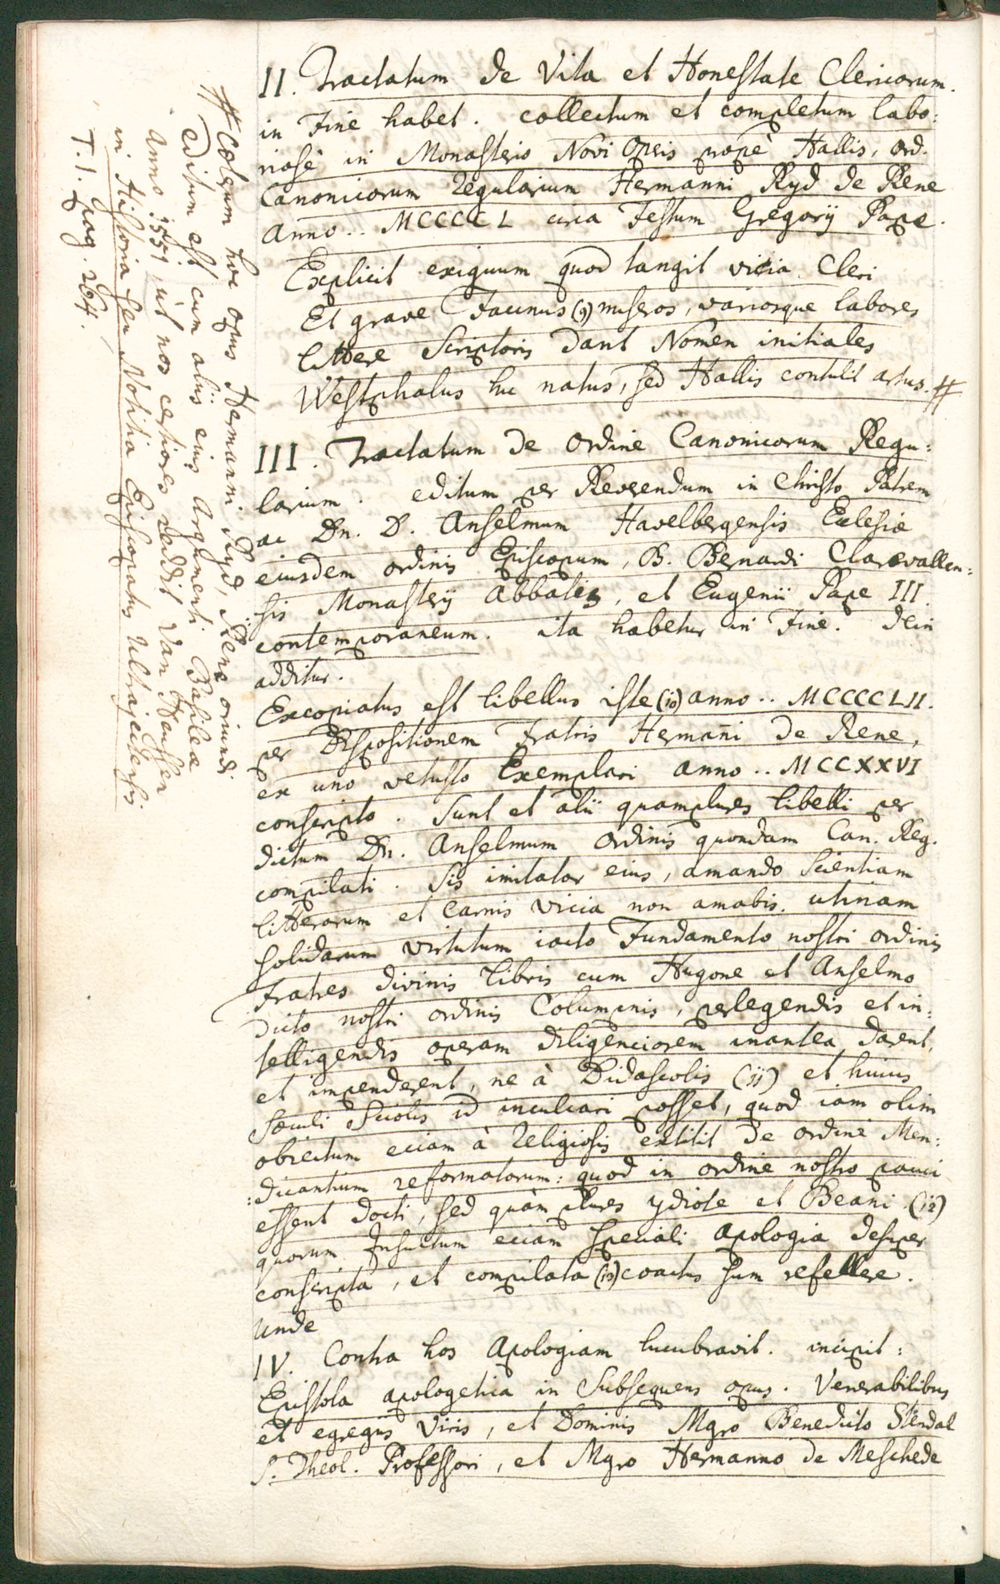 II. Tractatum de Vita et Honestate Clericorum.
in Fine habet. collectum et completum labo:
riosè in Monasterio Novi Operis propè Hallis, ord.
Canonicorum Regularium Hermanni Ryd de Rene
Anno .. MCCCCL circa Festum Gregorÿ Pape.
Explicit exiguum quod tangit vicia Cleri
Et grave Facinus (9) miseros, variosque labores
littere Scriptoris dant Nomen initiales
Westphalus huc natus, sed Hallis contulit artus. #
III. Tractatum de ordine Canonicorum Regu:
larium. editum per Reverendum in Christo Patrem
ac Dn. D. Anselmum Havelbergensis Eclesiæ
eiusdem ordinis Episcopum, B. Bernardi Clarevallen:
:sis Monasterÿ Abbatis, et Eugenii Pape III.
contemporaneum. ita habetur in Fine. dein
additur.
Excopiatus est libellus iste (10) anno .. MCCCCLII.
per Dispositionem Fratris Hermañi de Rene,
ex uno vetusto Exemplari anno .. MCCXXVI
conscripto. Sunt et alii quamplures libelli per
dictum Dn. Anselmum ordinis quondam Can. Reg.
compilati. Sis imitator eius, amando Scientiam
litterarum et Carnis vicia non amabis. utinam
solidarum virtutum iacto Fundamento nostri ordinis
Fratres divinis libris cum Hugone et Anselmo
dicto nostri ordinis Columpnis, perlegendis et in:
telligendis operam diligenciorem inantea darent,
et impenderent, ne à Didascolis (11) et huius
Sæculi Sciolis id inculcari posset, quod iam olim
obiectum eciam à Religiosis extitit de ordine Men:
:dicantium reformatorum: quod in ordine nostro pauci
essent docti, sed quàm plures ydiote et Beani. (12)
quorum Insultum eciam speciali Apologia desuper
conscripta, et compilata (13) coactus sum refellere.
Unde
IV. Contra hos Apologiam lucubravit. incipit:
Epistola apologetica in Subsequens opus. Venerabilibus
et egregiis Viris, et Dominis Mgro Benedicto Stendal
S. Theol. Professori, et Mgro Hermanno de Meschede
# Cæterum hoc opus Hermanni Ryd, Rene oriundi
editum est cum aliis eius Argumenti Basileæ
Anno 1551 ut nos certiores reddit Van Heussen
in Historia seu Notitia Episcopatus Ultrajectensis
T. I. pag. 264.